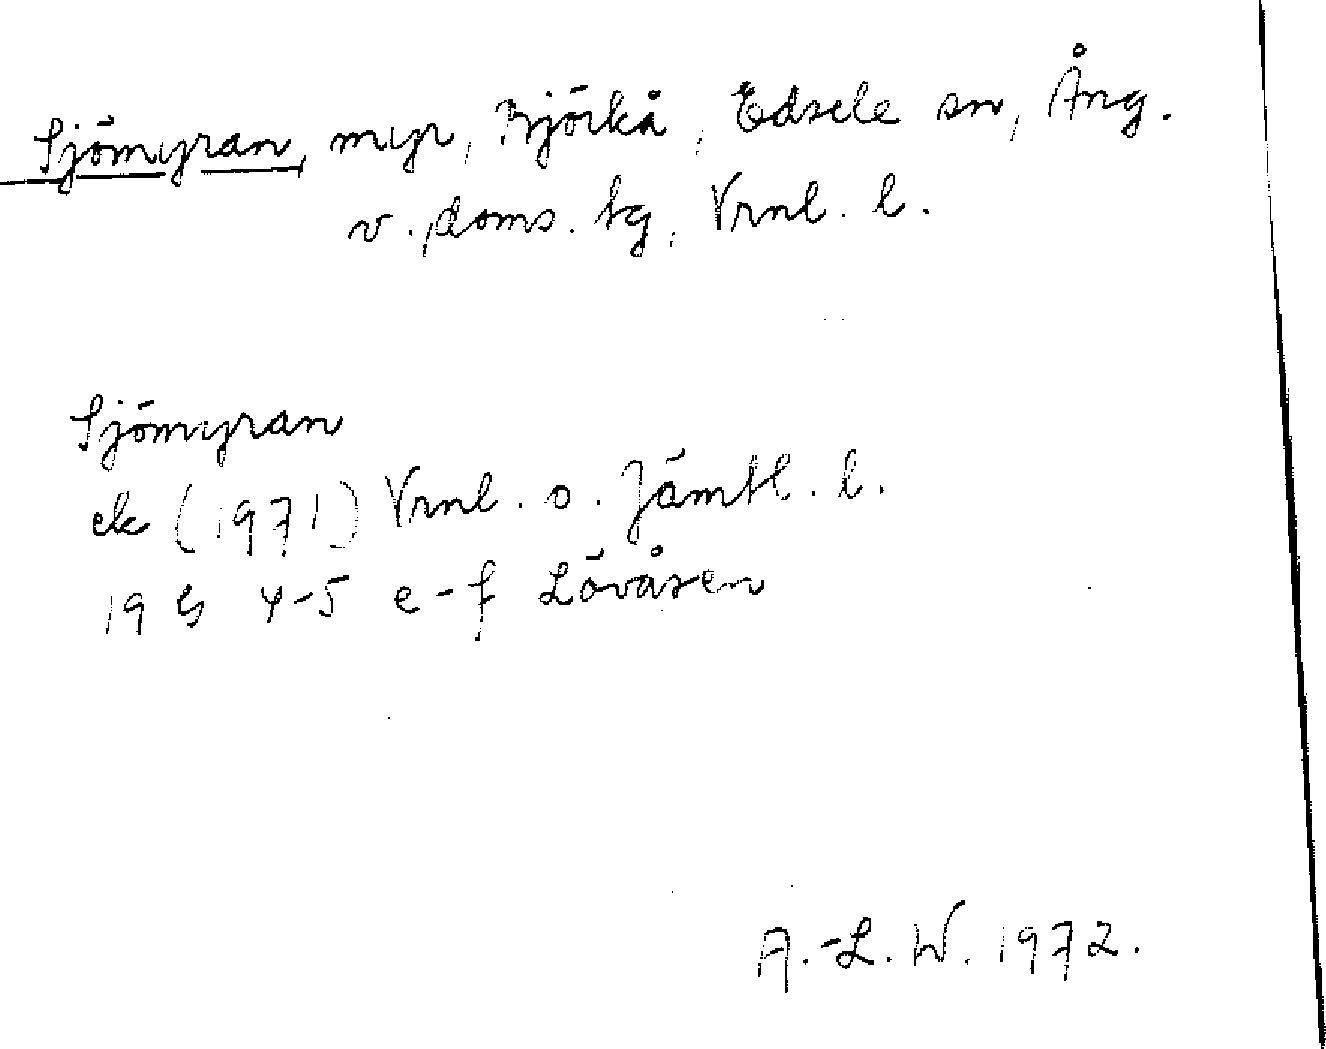 Sjömyran, myr, Björkå, Edsele sn, Ång.
v. doms. tg, Vrnl. l.
Sjömyran
ek (1971) Vrnl. o. Jämtl. l.
19 G 4-5 e-f Lövåsen
A.-L. W. 1972.